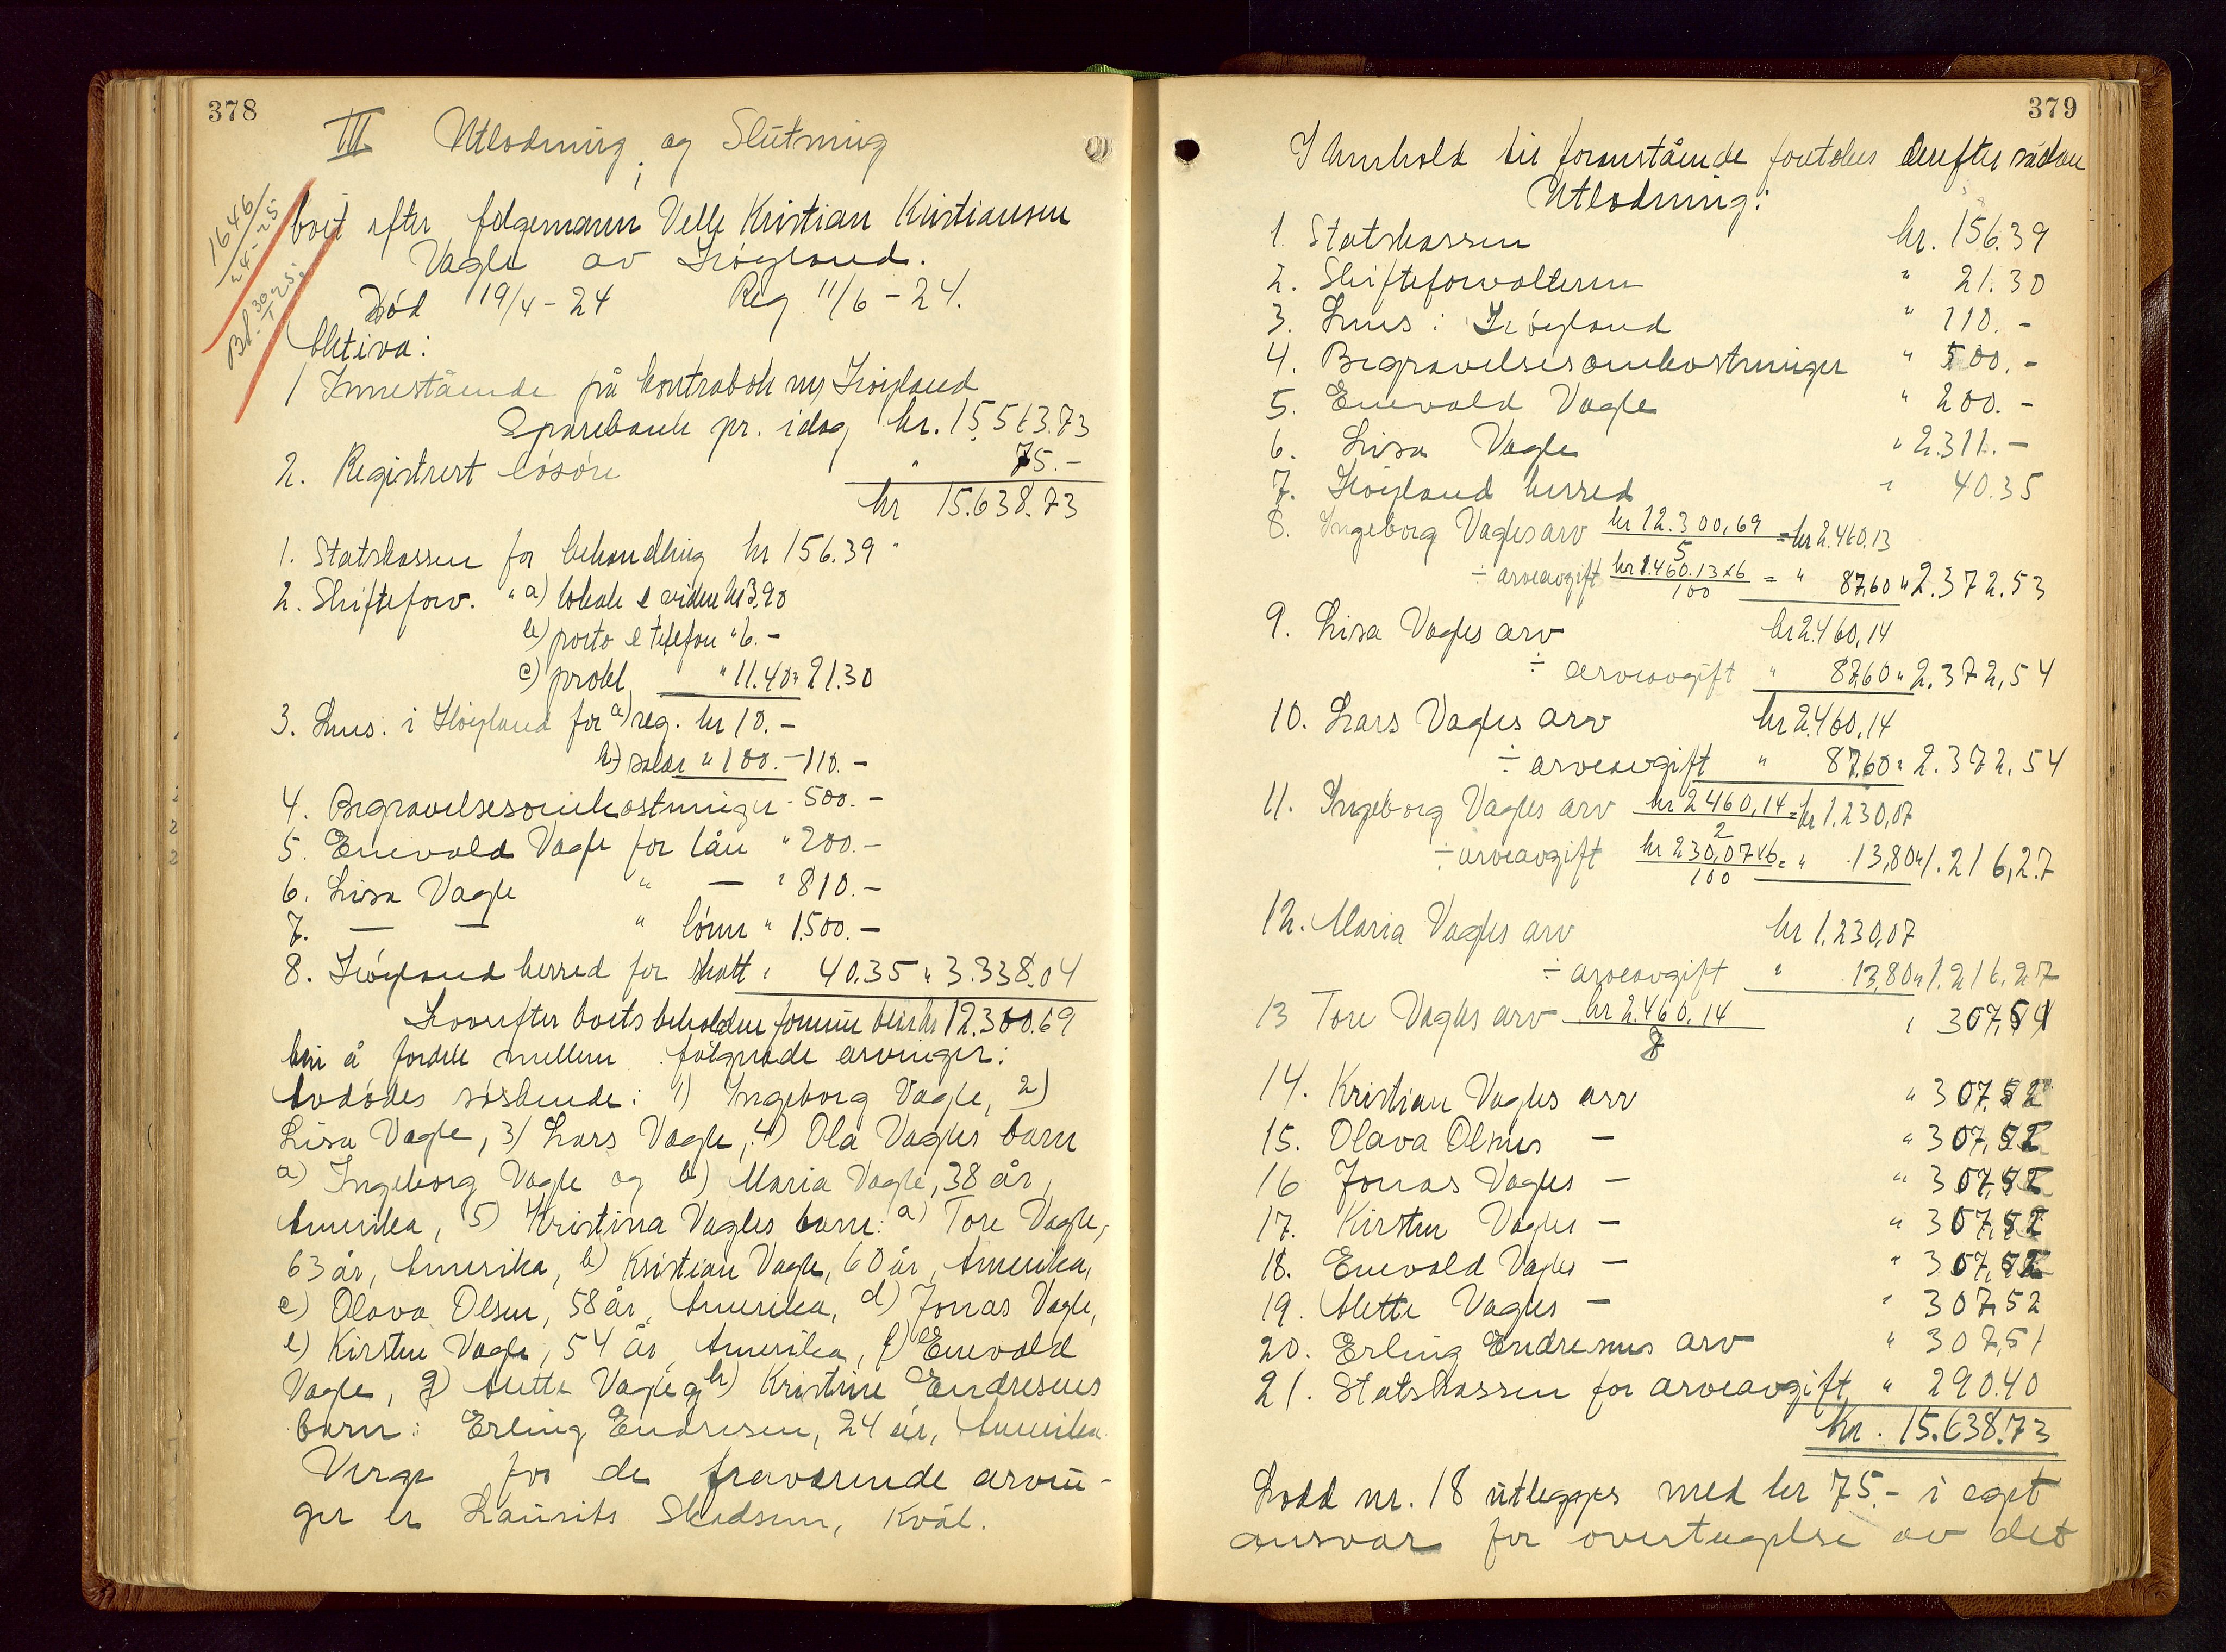 378
III Utlodning og Slutning
i
1646/24-4-25
Bl. 30/7 25.
boet efter følgemann Velle Kristian Kristiansen
Vagle av Høyland.
Død 19/4-24 Reg 11/6-24.
Aktiva:
1 Innestående på kontrabok mg Høyland
Sparebank pr. idag kr. 15.563.73
2. Registrert løsøre " 75.-
kr 15.638.73
1. Statskassen for behandling kr 156.39 "
2. Skifteforv. " a) lokale & vidne kr 3,90
b) porto & telefon " 6.-
c) protkl " 11.40 " 21.30
3. Lens. i Høyland for a) reg. kr 10.-
b) salær " 100.- 110.-
4. Begravelsesomkostninger - 500.-
5. Enevold Vagle for lån " 200.-
6. Lisa Vagle " — " 810.-
7. — — " lønn " 1.500.-
8. Høyland herred for skatt " 40.35 " 3.338.04
Hvorefter boets beholdne formue blir kr 12.300.69
bli å fordele mellem følgende arvinger:
Avdødes søskende: 1) Ingeborg Vagle, 2)
Lisa Vagle, 3) Lars Vagle, 4) Ola Vagles barn
a) Ingeborg Vagle og b) Maria Vagle, 38 år,
Amerika, 5) Kristina Vagles barn: a) Tore Vagle,
63 år, Amerika, b) Kristian Vagle, 60 år, Amerika,
c) Olava Olsen, 58 år, Amerika, d) Jonas Vagle,
e) Kirsten Vagle, 54 år, Amerika, f) Enevold
Vagle, g) Mette Vagle og h) Kristine Endresens
barn: Erling Endresen, 24 år, Amerika.
Verge for de fraværende arvin-
ger er Lauritz Skadsem, Kvål.
379
I henhold til foranstående foretokes derefter sådan
Utlodning:
1. Statskassen kr. 156.39
2. Skifteforvalteren " 21.30
3. Lens: Høyland " 110.-
4. Begravelsesomkostninger " 500.-
5. Enevold Vagle " 200.-
6. Lisa Vagle " 2.311.-
7. Høyland herred " 40.35
8. Ingeborg Vagles arv kr 12.300,69 / 5 = kr 2.460,13
÷ arveavgift kr 1.460.13 x 6 / 100 = " 87,60 " 2.372.53
9. Lisa Vagles arv kr 2.460,14
÷ arveavgift " 87,60 " 2.372,54
10. Lars Vagles arv kr 2.460,14
÷ arveavgift " 87,60 " 2.372,54
11. Ingeborg Vagles arv kr 2460,14 / 2 = kr 1.230,07
÷ arveavgift kr 230,07 x 6 / 100 = " 13,80 " 1.216,27
12. Maria Vagles arv kr 1.230,07
÷ arveavgift " 13,80 " 1.216,27
13 Tore Vagles arv kr 2.460.14 / 8 " 307,51
14. Kristian Vagles arv " 307,52
15. Olava Olsens — " 307,52
16 Jonas Vagles — " 307,52
17. Kirsten Vagles — " 307,52
18. Enevold Vagles — " 307,52
19. Mette Vagles — " 307,52
20. Erling Endresens arv " 307,51
21. Statskassen for arveavgift " 290.40
Kr. 15.638.73
Lodd nr. 18 utlegges med kr 75.- i eget
ansvar for overtagelse av det